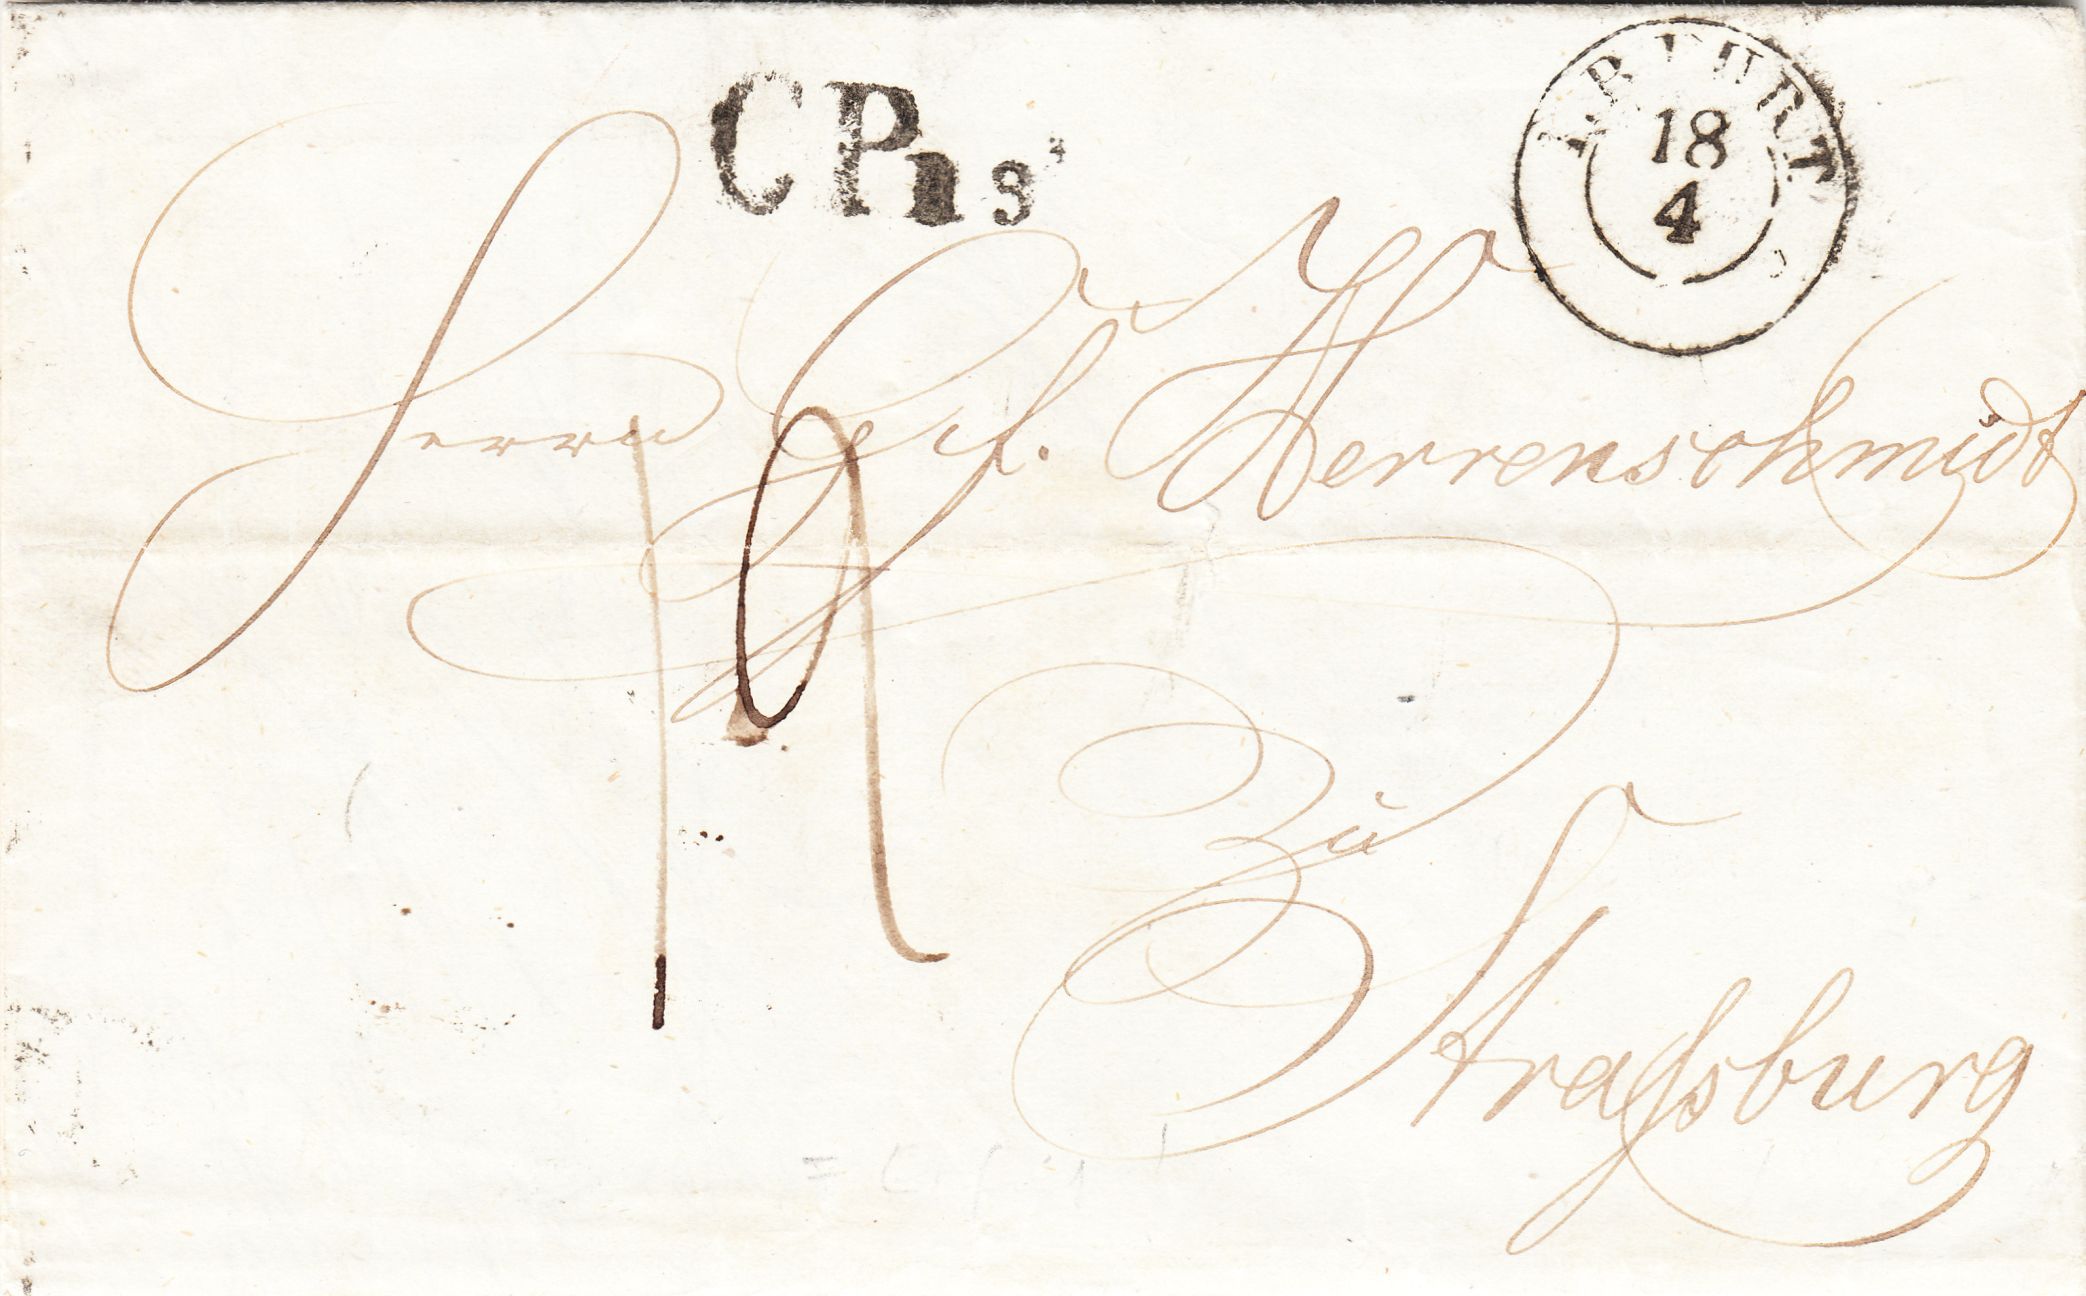 CPR 3.
ERFURT
18
4
Herrn Herrenschmidt
19
zu
Strassburg